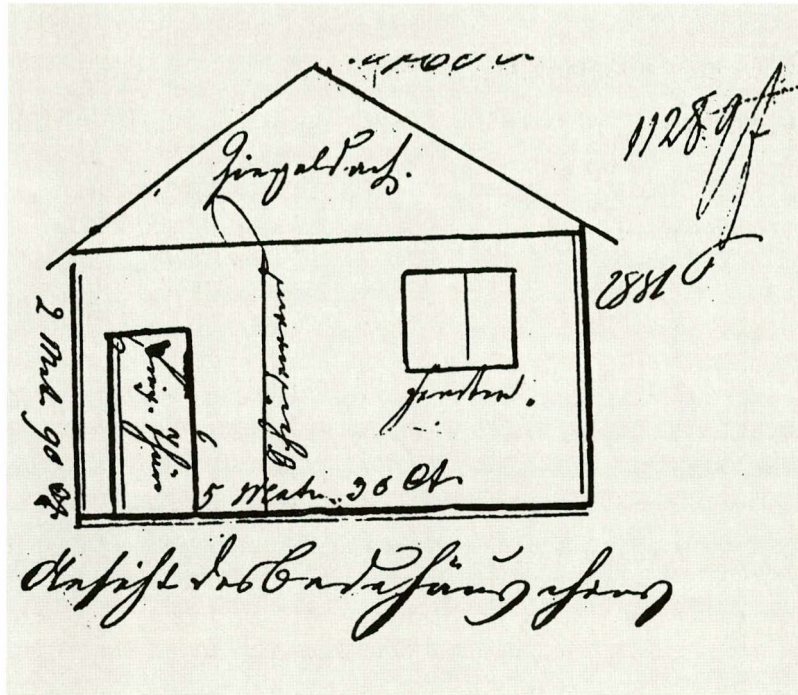 1128
Ziegeldach.
1882
2 Met. 90 Ct.
Eing. Thür
Fenster.
5 Metr. 30 Ct.
Ansicht des Badehäuschens